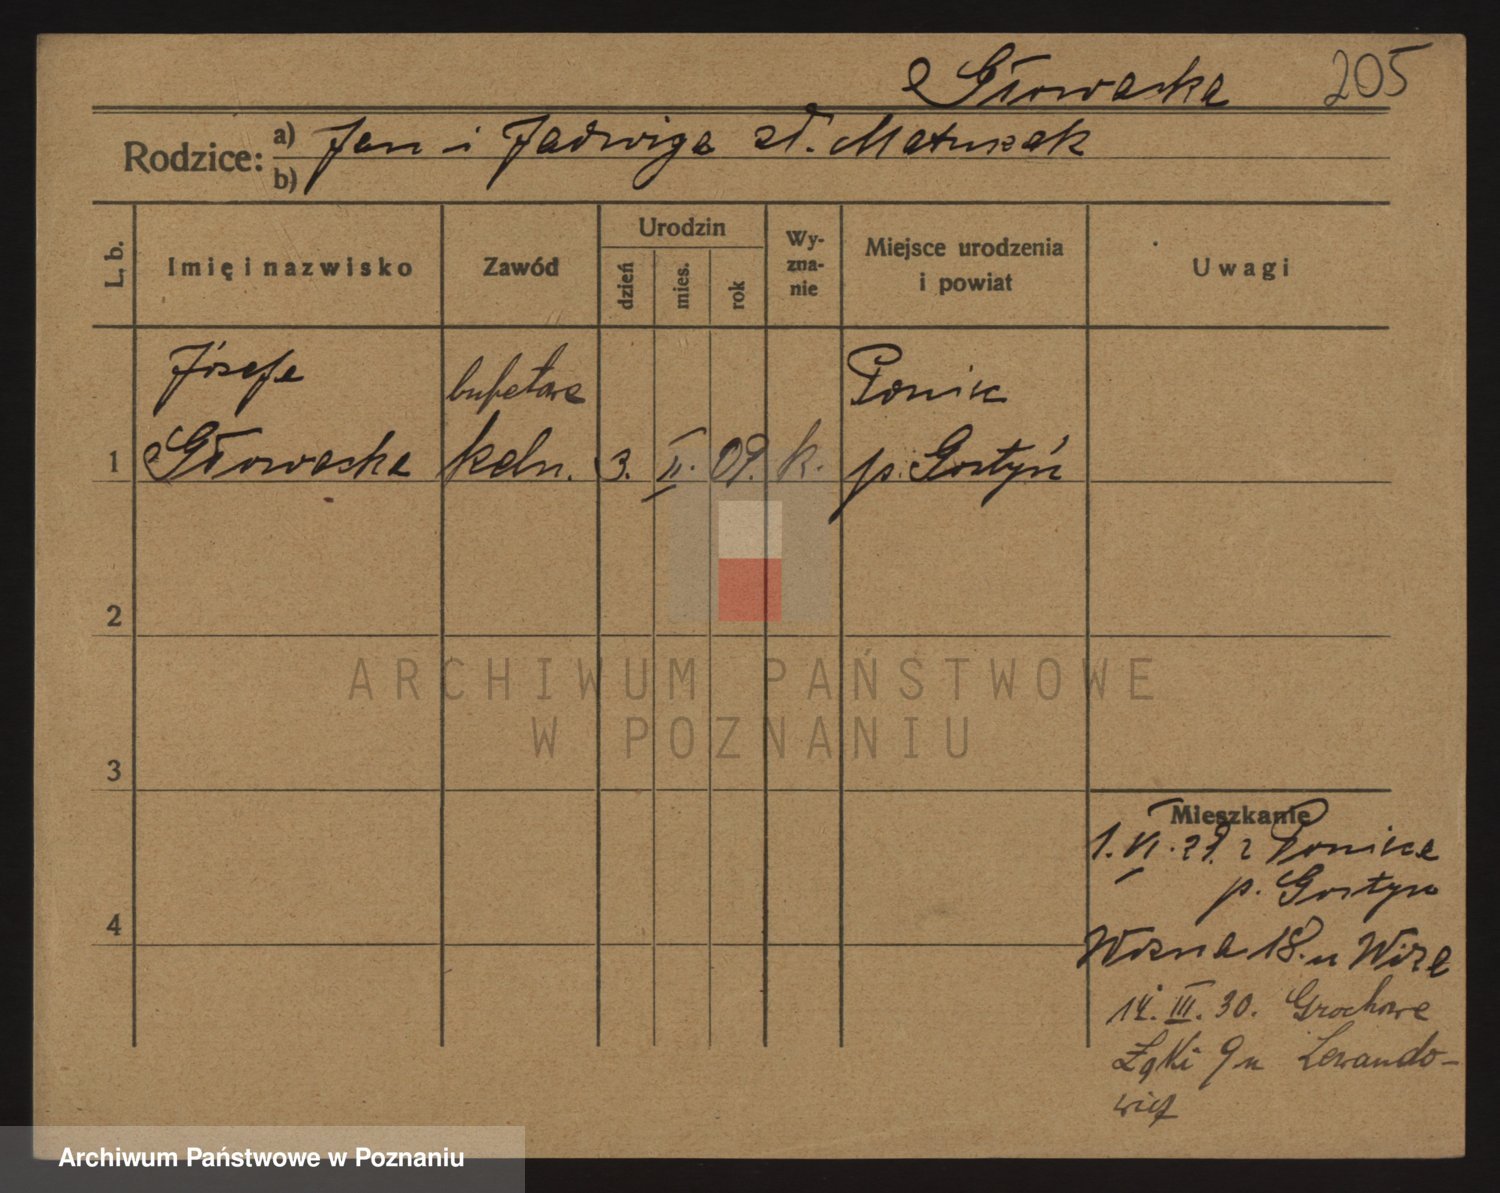 Głowacka 205
Rodzice: a) Jan i Jadwiga zł. Matuszak
b)
L. b. Imię i nazwisko Zawód Urodzin dzień mies. rok Wyznanie Miejsce urodzenia i powiat Uwagi
Józefa bufetowa Ponie
1 Głowacka keln. 3. II. 09. k. p. Gostyń
2
ARCHIWUM PAŃSTWOWE
W POZNANIU
3
Mieszkanie
1. VI. 29. z Ponieca
p. Gostyn
4
18. u
14. III. 30. Grochowe
Łąki 9 u Lewando-
wicz
Archiwum Państwowe w Poznaniu